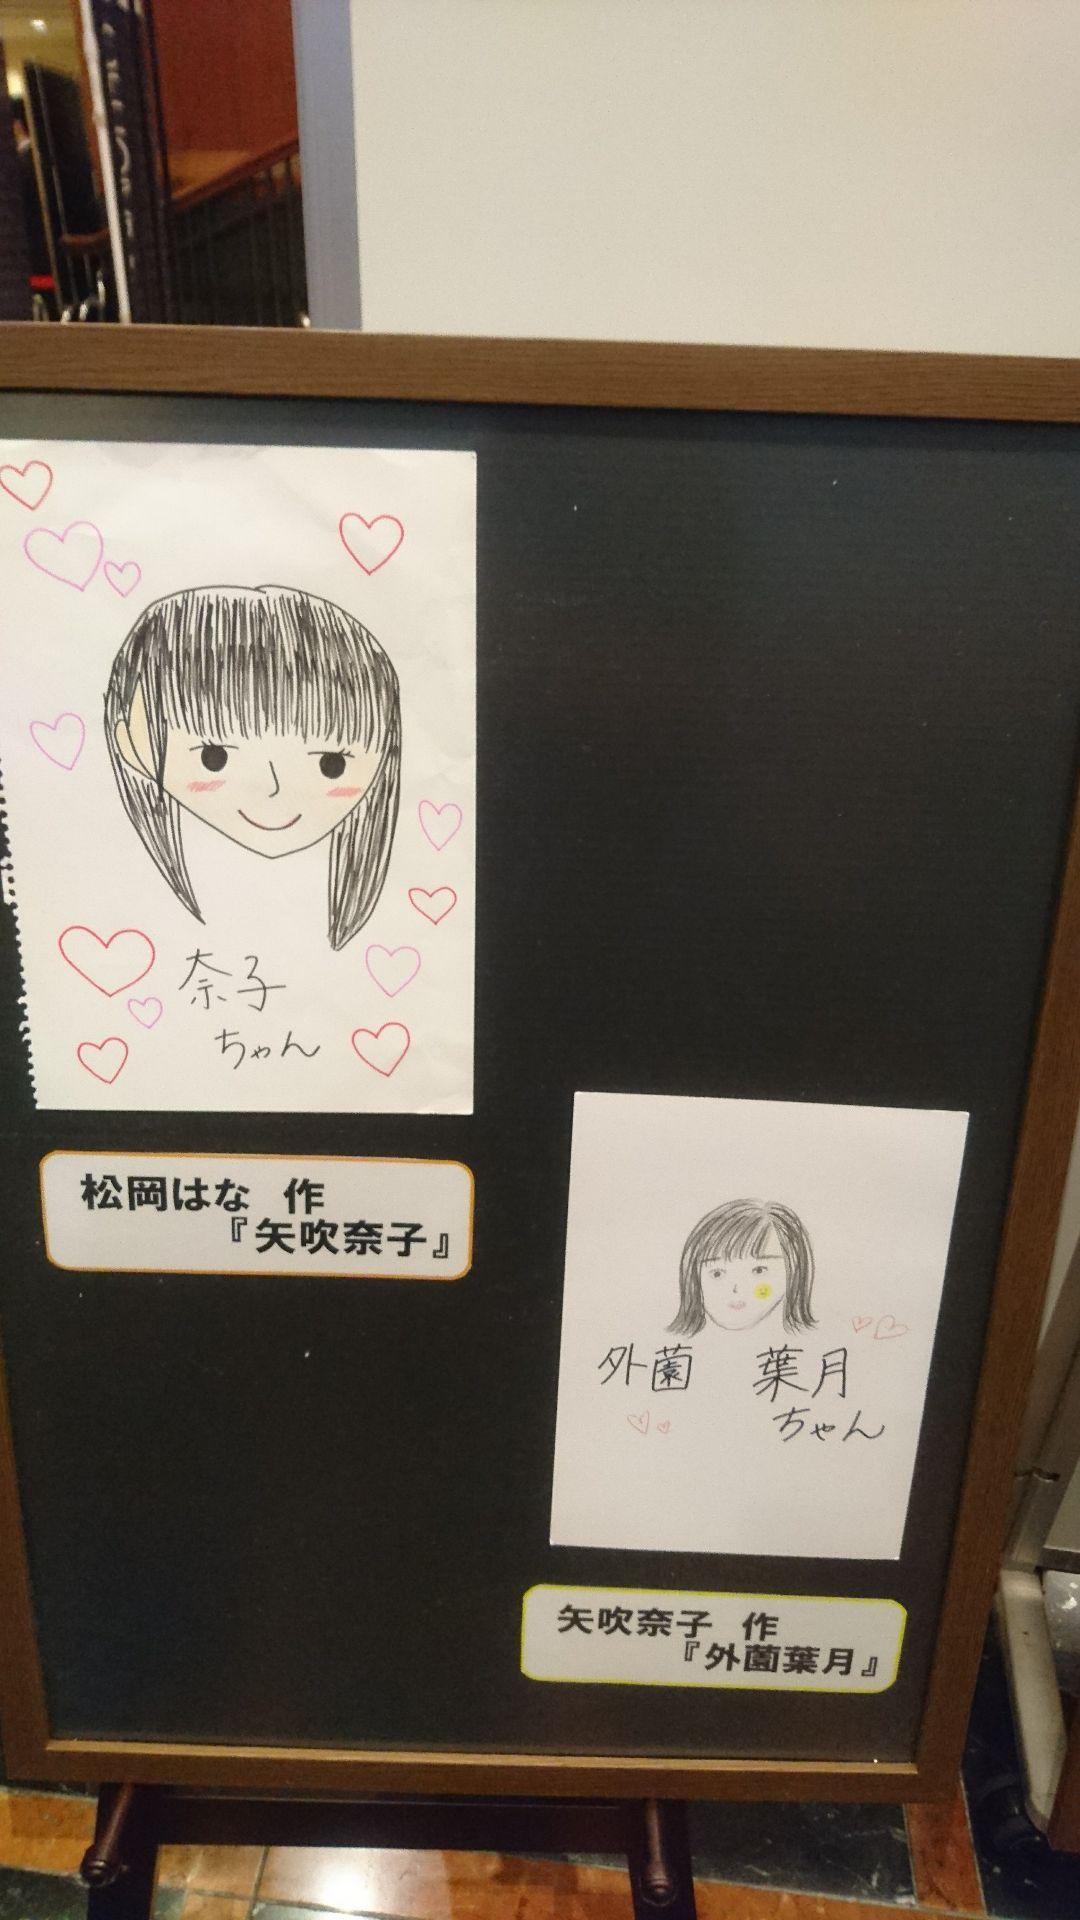 奈子
ちゃん
松岡はな 作
『矢吹奈子』
外薗 葉月
ちゃん
矢吹奈子 作
『外薗葉月』